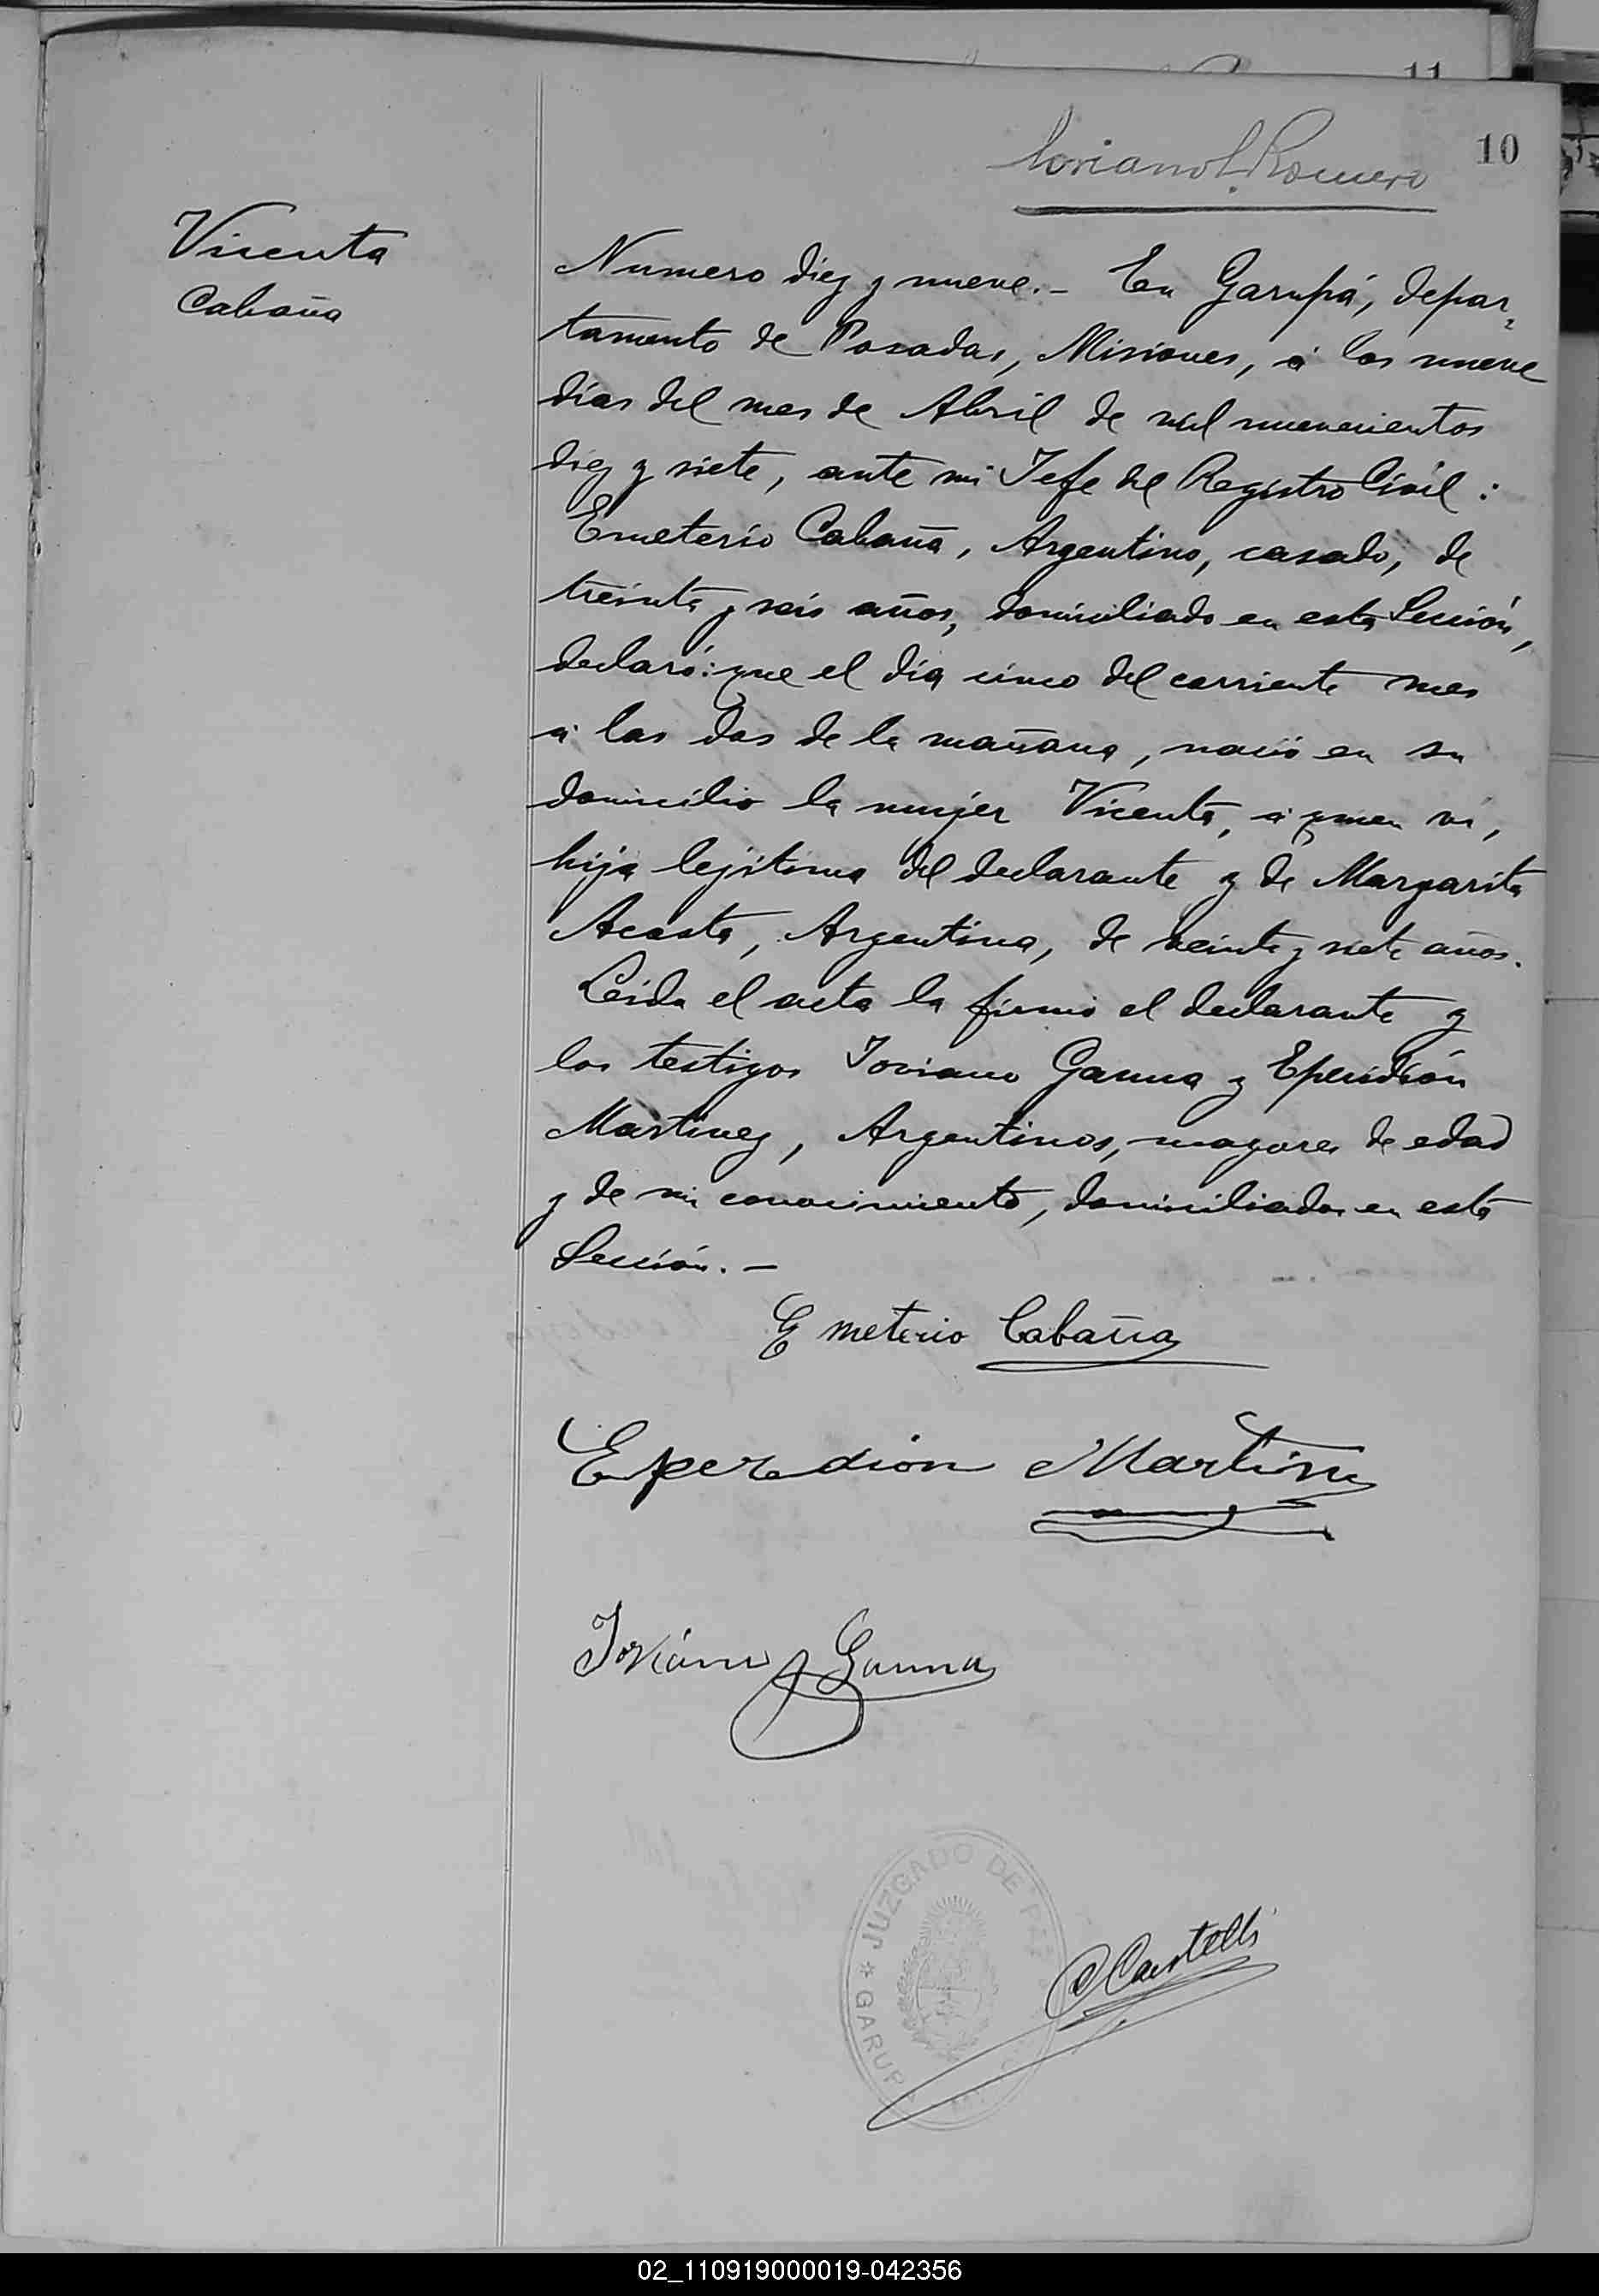 11
10
Loriano L. Romero
Vicenta
Cabaña
Numero diez y nueve.- En Garupá, depar-
tamento de Posadas, Misiones, á los nueve
días del mes de Abril de mil nuevecientos
diez y siete, ante mi Jefe del Registro Civil :
Emeterio Cabaña, Argentino, casado, de
treinta y seis años, domiciliado en esta Sección,
declaró: que el día cinco del corriente mes
á las dos de la mañana, nació en su
domicilio la mujer Vicenta, á quien vi,
hija lejitima del declarante y de Margarita
Acosta, Argentina, de veinte y siete años.
Leida el acta la firmó el declarante y
los testigos Joviano Gauna y Eperidión
Martinez, Argentinos, mayores de edad
y de mi conocimiento, domiciliados en esta
Sección.-
Emeterio Cabaña
Eperedion Martine
Joviano Gauna
JUZGADO DE PAZ
* GARUPA
Castelli
02_110919000019-042356